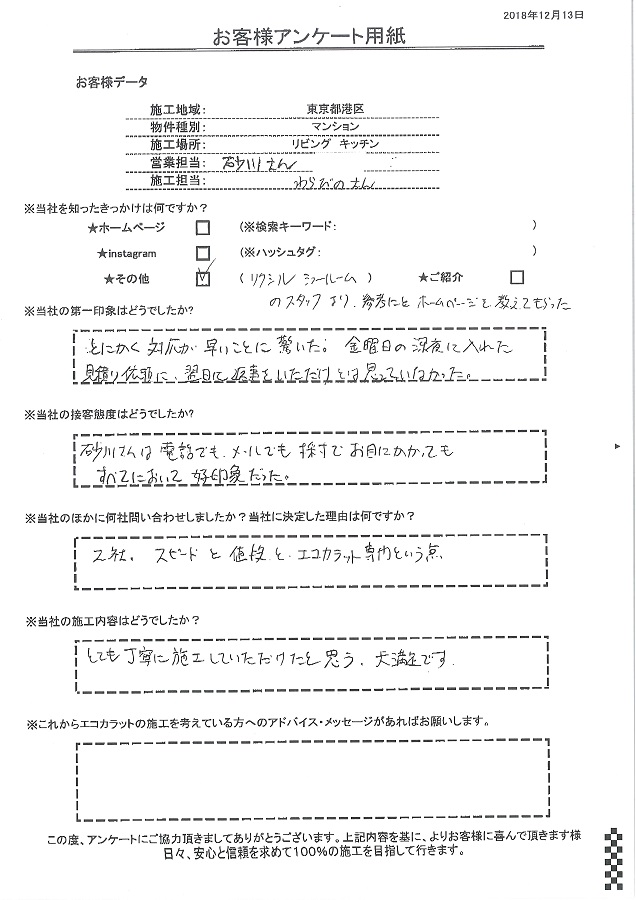 2018年12月13日
お客様アンケート用紙
お客様データ
施工地域: 東京都港区
物件種別: マンション
施工場所: リビング キッチン
営業担当: 砂川さん
施工担当: わらびのさん
※当社を知ったきっかけは何ですか?
★ホームページ □ (※検索キーワード: )
★instagram □ (※ハッシュタグ: )
★その他 ☑ ( リクシル ショールーム ) ★ご紹介 □
のスタッフより、参考にと ホームページを教えてもらった
※当社の第一印象はどうでしたか?
とにかく 対応が 早いことに 驚いた。 金曜日の 深夜に入れた
見積り依頼に、翌日に返事をいただけるとは思っていなかった。
※当社の接客態度はどうでしたか?
砂川さんは 電話でも、メールでも 採寸で お目にかかっても
すべてにおいて 好印象だった。
※当社のほかに何社問い合わせしましたか?当社に決定した理由は何ですか?
2社。 スピードと 値段と、エコカラット専門という点。
※当社の施工内容はどうでしたか?
とても丁寧に施工していただけたと思う。大満足です。
※これからエコカラットの施工を考えている方へのアドバイス・メッセージがあればお願いします。
この度、アンケートにご協力頂きましてありがとうございます。上記内容を基に、よりお客様に喜んで頂きます様
日々、安心と信頼を求めて100%の施工を目指して行きます。